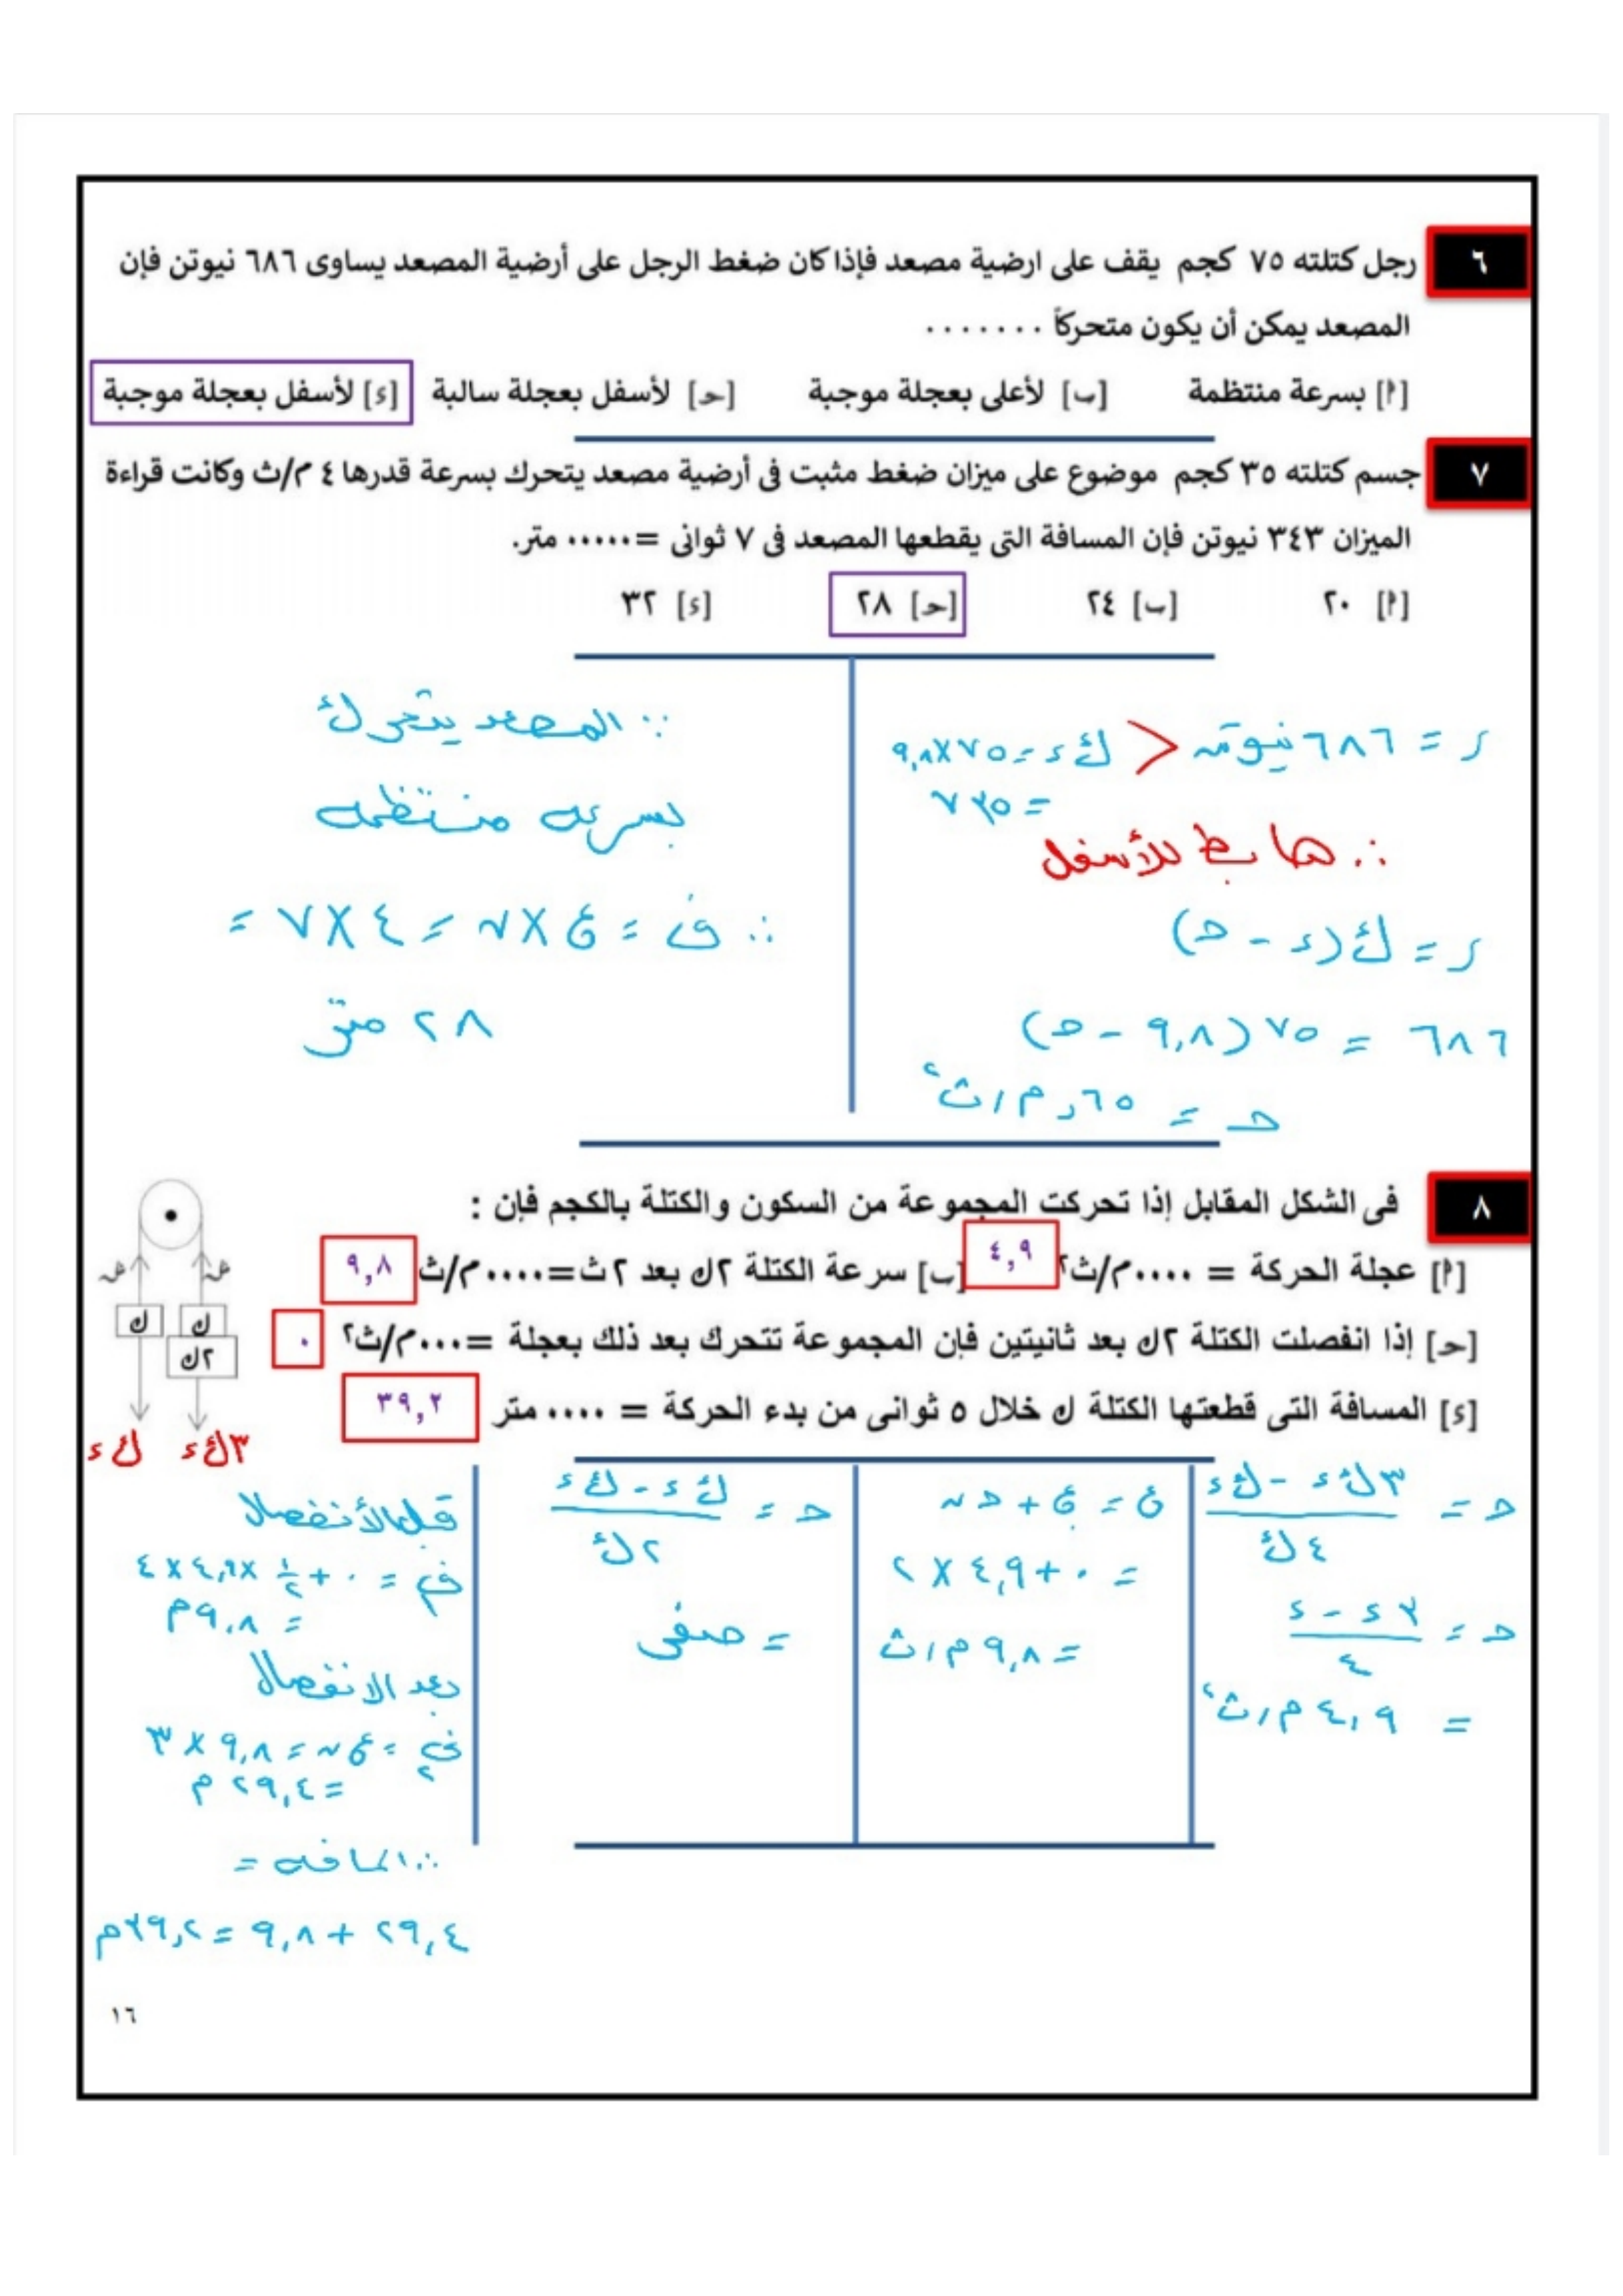 ٦ رجل كتلته ٧٥ كجم يقف على ارضية مصعد فإذا كان ضغط الرجل على أرضية المصعد يساوى ٦٨٦ نيوتن فإن
المصعد يمكن أن يكون متحركاً .......
[أ] بسرعة منتظمة [ب] لأعلى بعجلة موجبة [حـ] لأسفل بعجلة سالبة [ء] لأسفل بعجلة موجبة
٧ جسم كتلته ٣٥ كجم موضوع على ميزان ضغط مثبت فى أرضية مصعد يتحرك بسرعة قدرها ٤ م/ث وكانت قراءة
الميزان ٣٤٣ نيوتن فإن المسافة التى يقطعها المصعد فى ٧ ثوانى =..... متر.
[أ] ٢٠ [ب] ٢٤ [حـ] ٢٨ [ء] ٣٢
ر = ٦٨٦ نيوتن < ك ء = ٧٥×٩,٨
= ٧٣٥
∴ هابط للأسفل
ر = ك(ء - حـ)
٦٨٦ = ٧٥(٩,٨ - حـ)
حـ = ٦٥, م/ث٢
∵ المصعد يتحرك
بسرعه منتظمه
∴ ف = ع×ن = ٤×٧ =
٢٨ متر
٨ فى الشكل المقابل إذا تحركت المجموعة من السكون والكتلة بالكجم فإن :
[أ] عجلة الحركة = ....م/ث٢ ٤,٩ [ب] سرعة الكتلة ٢ك بعد ٢ ث=....م/ث ٩,٨
[حـ] إذا انفصلت الكتلة ٢ك بعد ثانيتين فإن المجموعة تتحرك بعد ذلك بعجلة =...م/ث٢ ٠
[ء] المسافة التى قطعتها الكتلة ك خلال ٥ ثوانى من بدء الحركة = .... متر ٣٩,٢
ش ش
ك ك
٢ك
٣ك ء ك ء
حـ = ٣ك ء - ك ء / ٤ك
حـ = ٣ء - ء / ٤
= ٤,٩ م/ث٢
ع = ع. + حـ ن
= ٠ + ٤,٩ × ٢
= ٩,٨ م/ث
حـ = ك ء - ك ء / ٢ك
= صفر
قبل الأنفصال
ف١ = ٠ + ١/٢ × ٤,٩ × ٤
= ٩,٨ م
بعد الانفصال
ف٢ = ع ن = ٩,٨ × ٣
= ٢٩,٤ م
∴ المسافه =
٢٩,٤ + ٩,٨ = ٣٩,٢ م
١٦